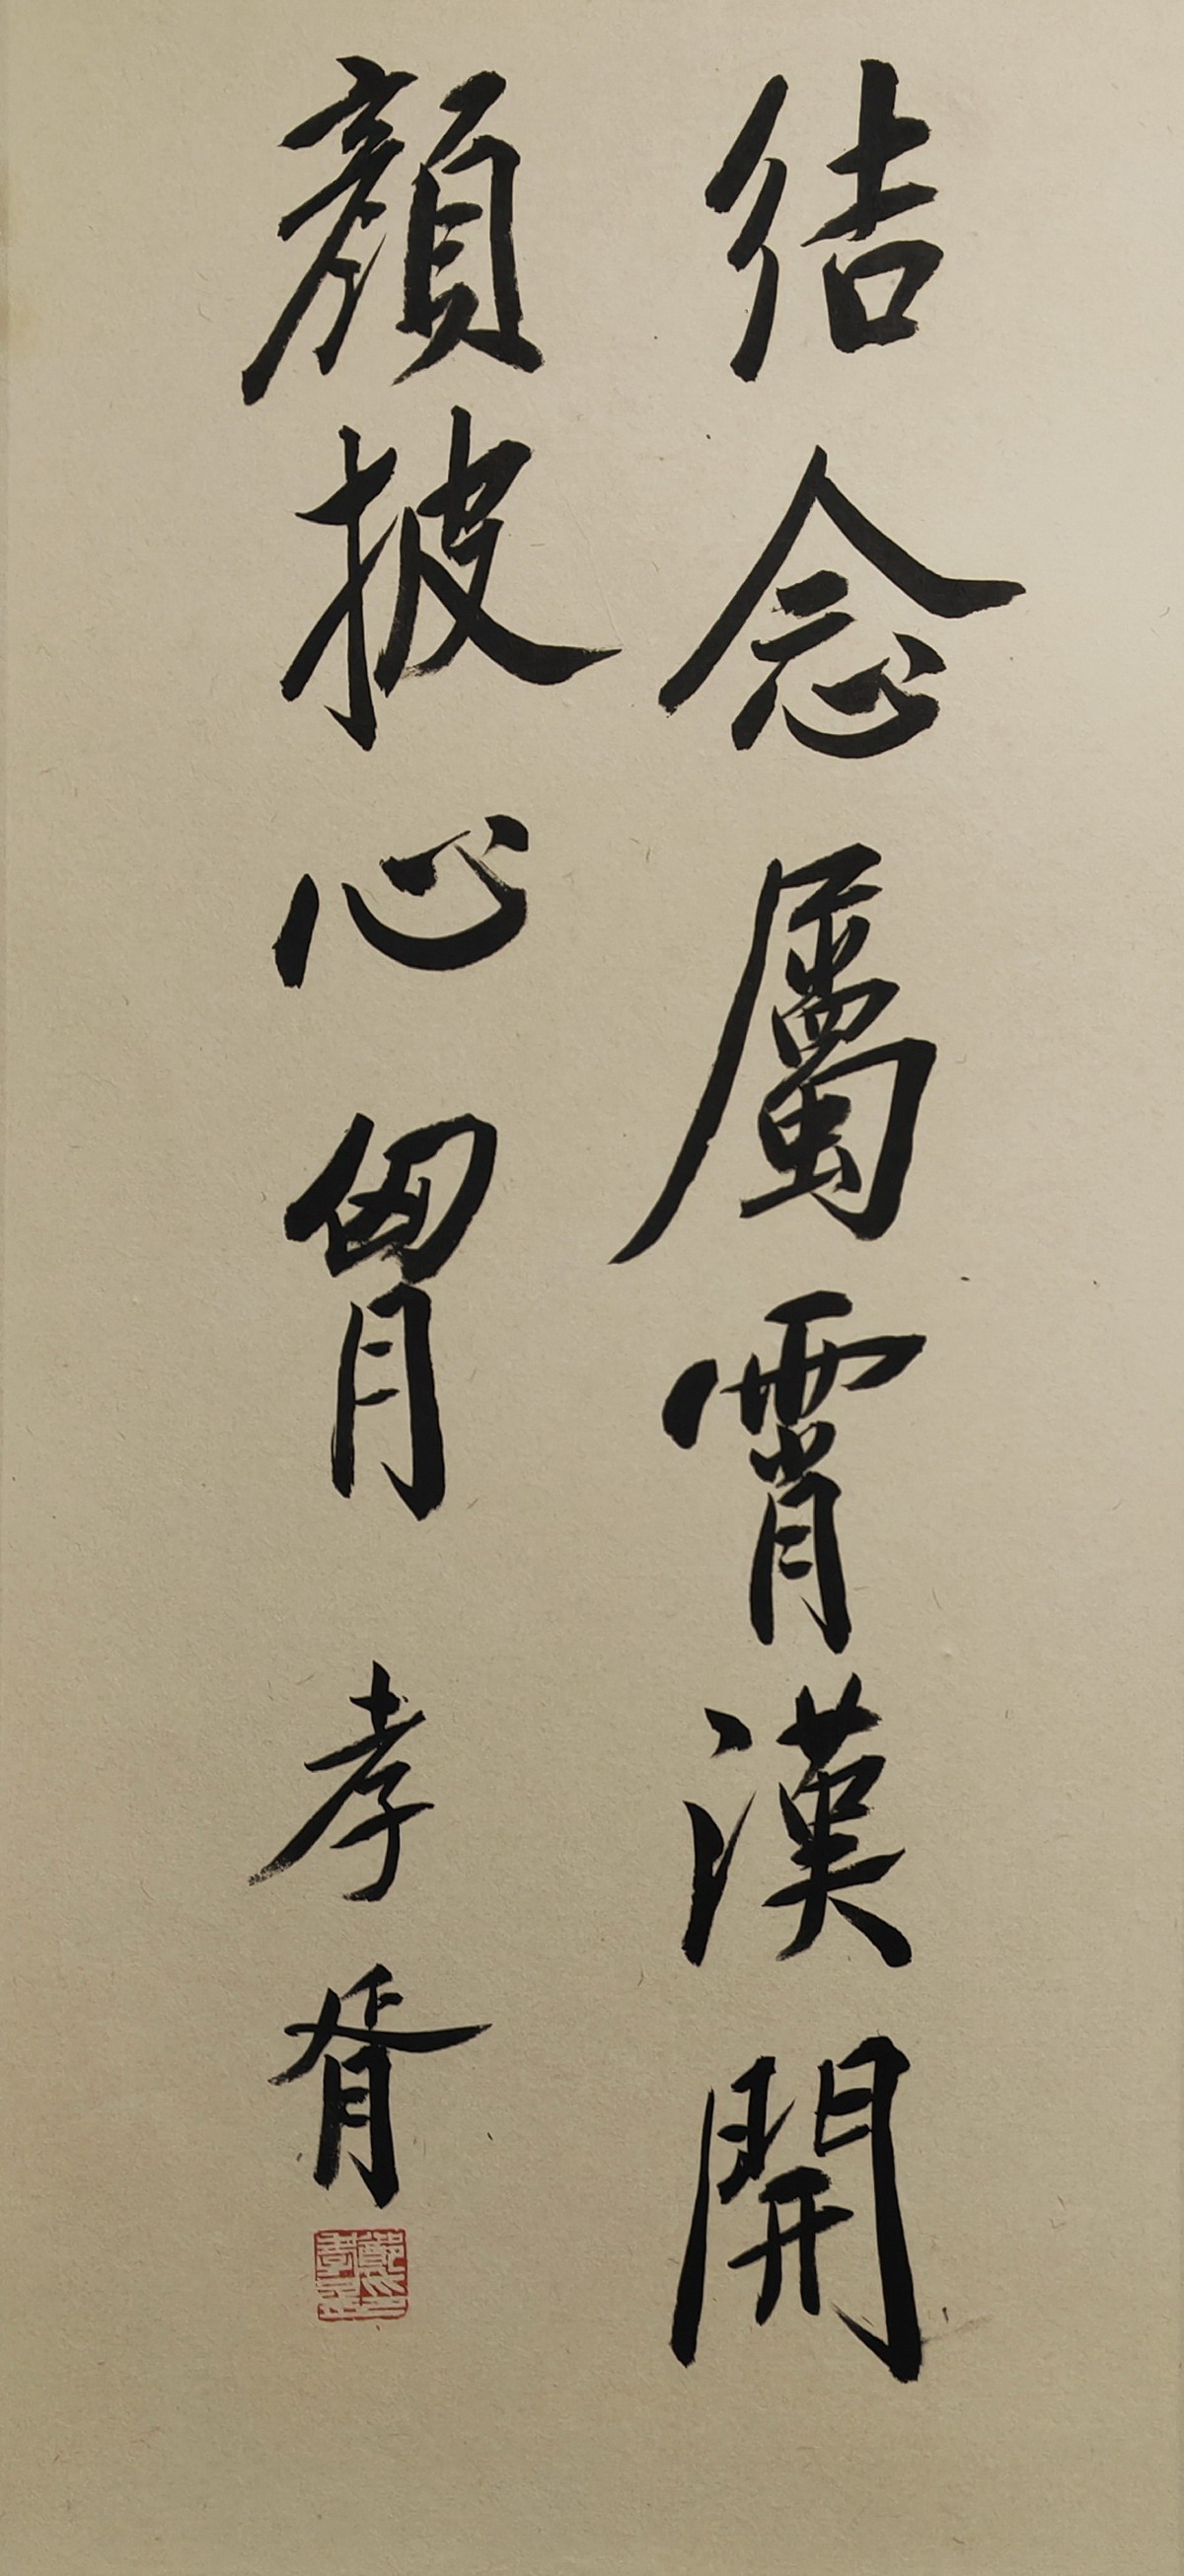 結念屬霄漢開
顏披心胷孝胥